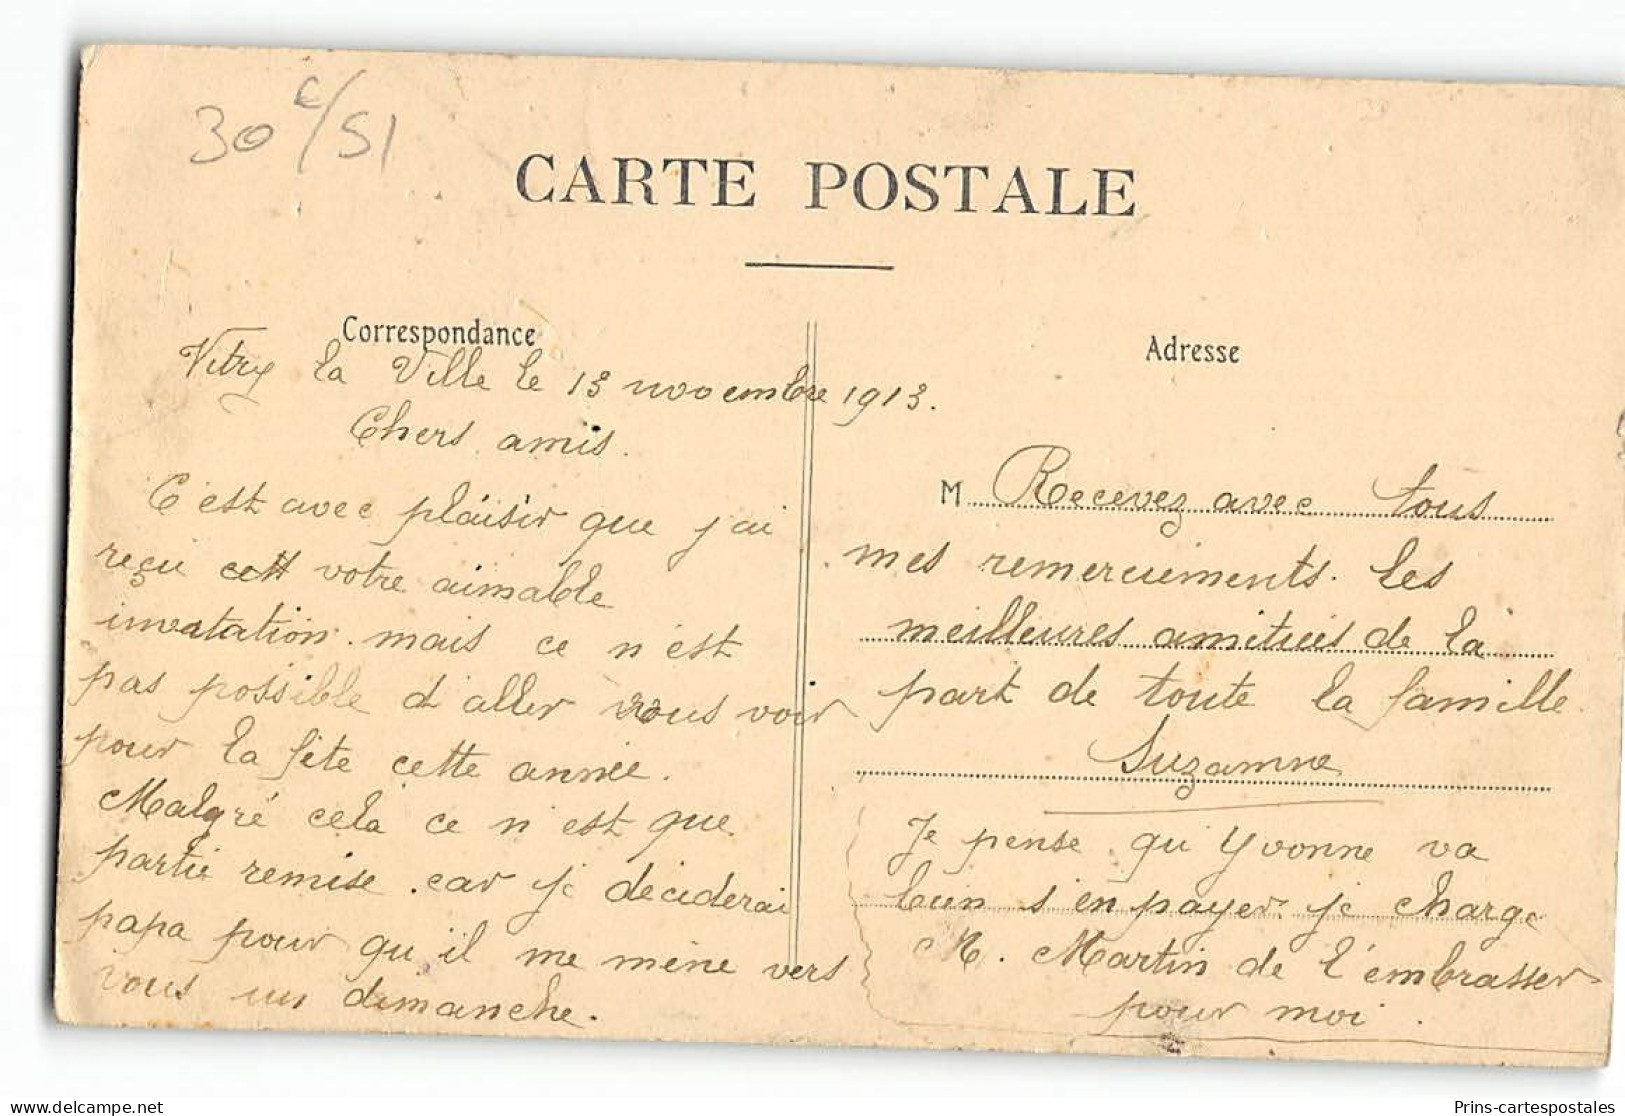 30 c/51
CARTE POSTALE
Correspondance
Vitry la Ville le 13 novembre 1913.
Chers amis.
C'est avec plaisir que j'ai
reçu cett votre aimable
invatation. mais ce n'est
pas possible d'aller vous voir
pour la fête cette année.
Malgré cela ce n'est que
partie remise. car je déciderai
papa pour qu'il me mène vers
vous un dimanche.
Adresse
M Recevez avec tous
mes remerciements. les
meilleures amitiés de la
part de toute la famille.
Suzanne
Je pense qu'Yvonne va
bien s'en payer. je charge
M. Martin de l'embrasser
pour moi.
Prins-cartespostales